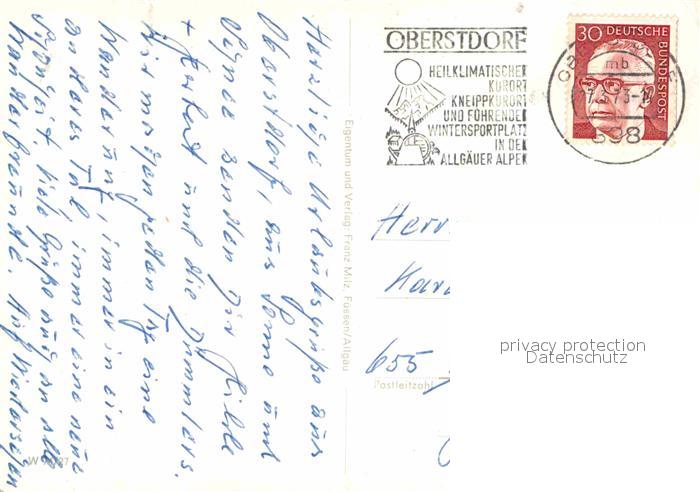 Herzliche Urlaubsgrüße aus
Oberstdorf, aus Sonne und
Schnee senden Dir Hilde
+ Herbert und die
Wir machen jeden Tag eine
Wanderung, immer in ein
anderes Tal, immer eine neue
Schönheit. Viele Grüße auch an alle
Wanderfreunde. Auf Wiedersehen
W
Eigentum und Verlag: Franz Milz, Füssen/Allgäu
OBERSTDORF
HEILKLIMATISCHER
KURORT
KNEIPPKURORT
UND FÜHRENDER
WINTERSPORTPLATZ
IN DEN
ALLGÄUER ALPEN
30 DEUTSCHE
BUNDESPOST
mb
898
Herr
655
Postleitzahl
privacy protection
Datenschutz